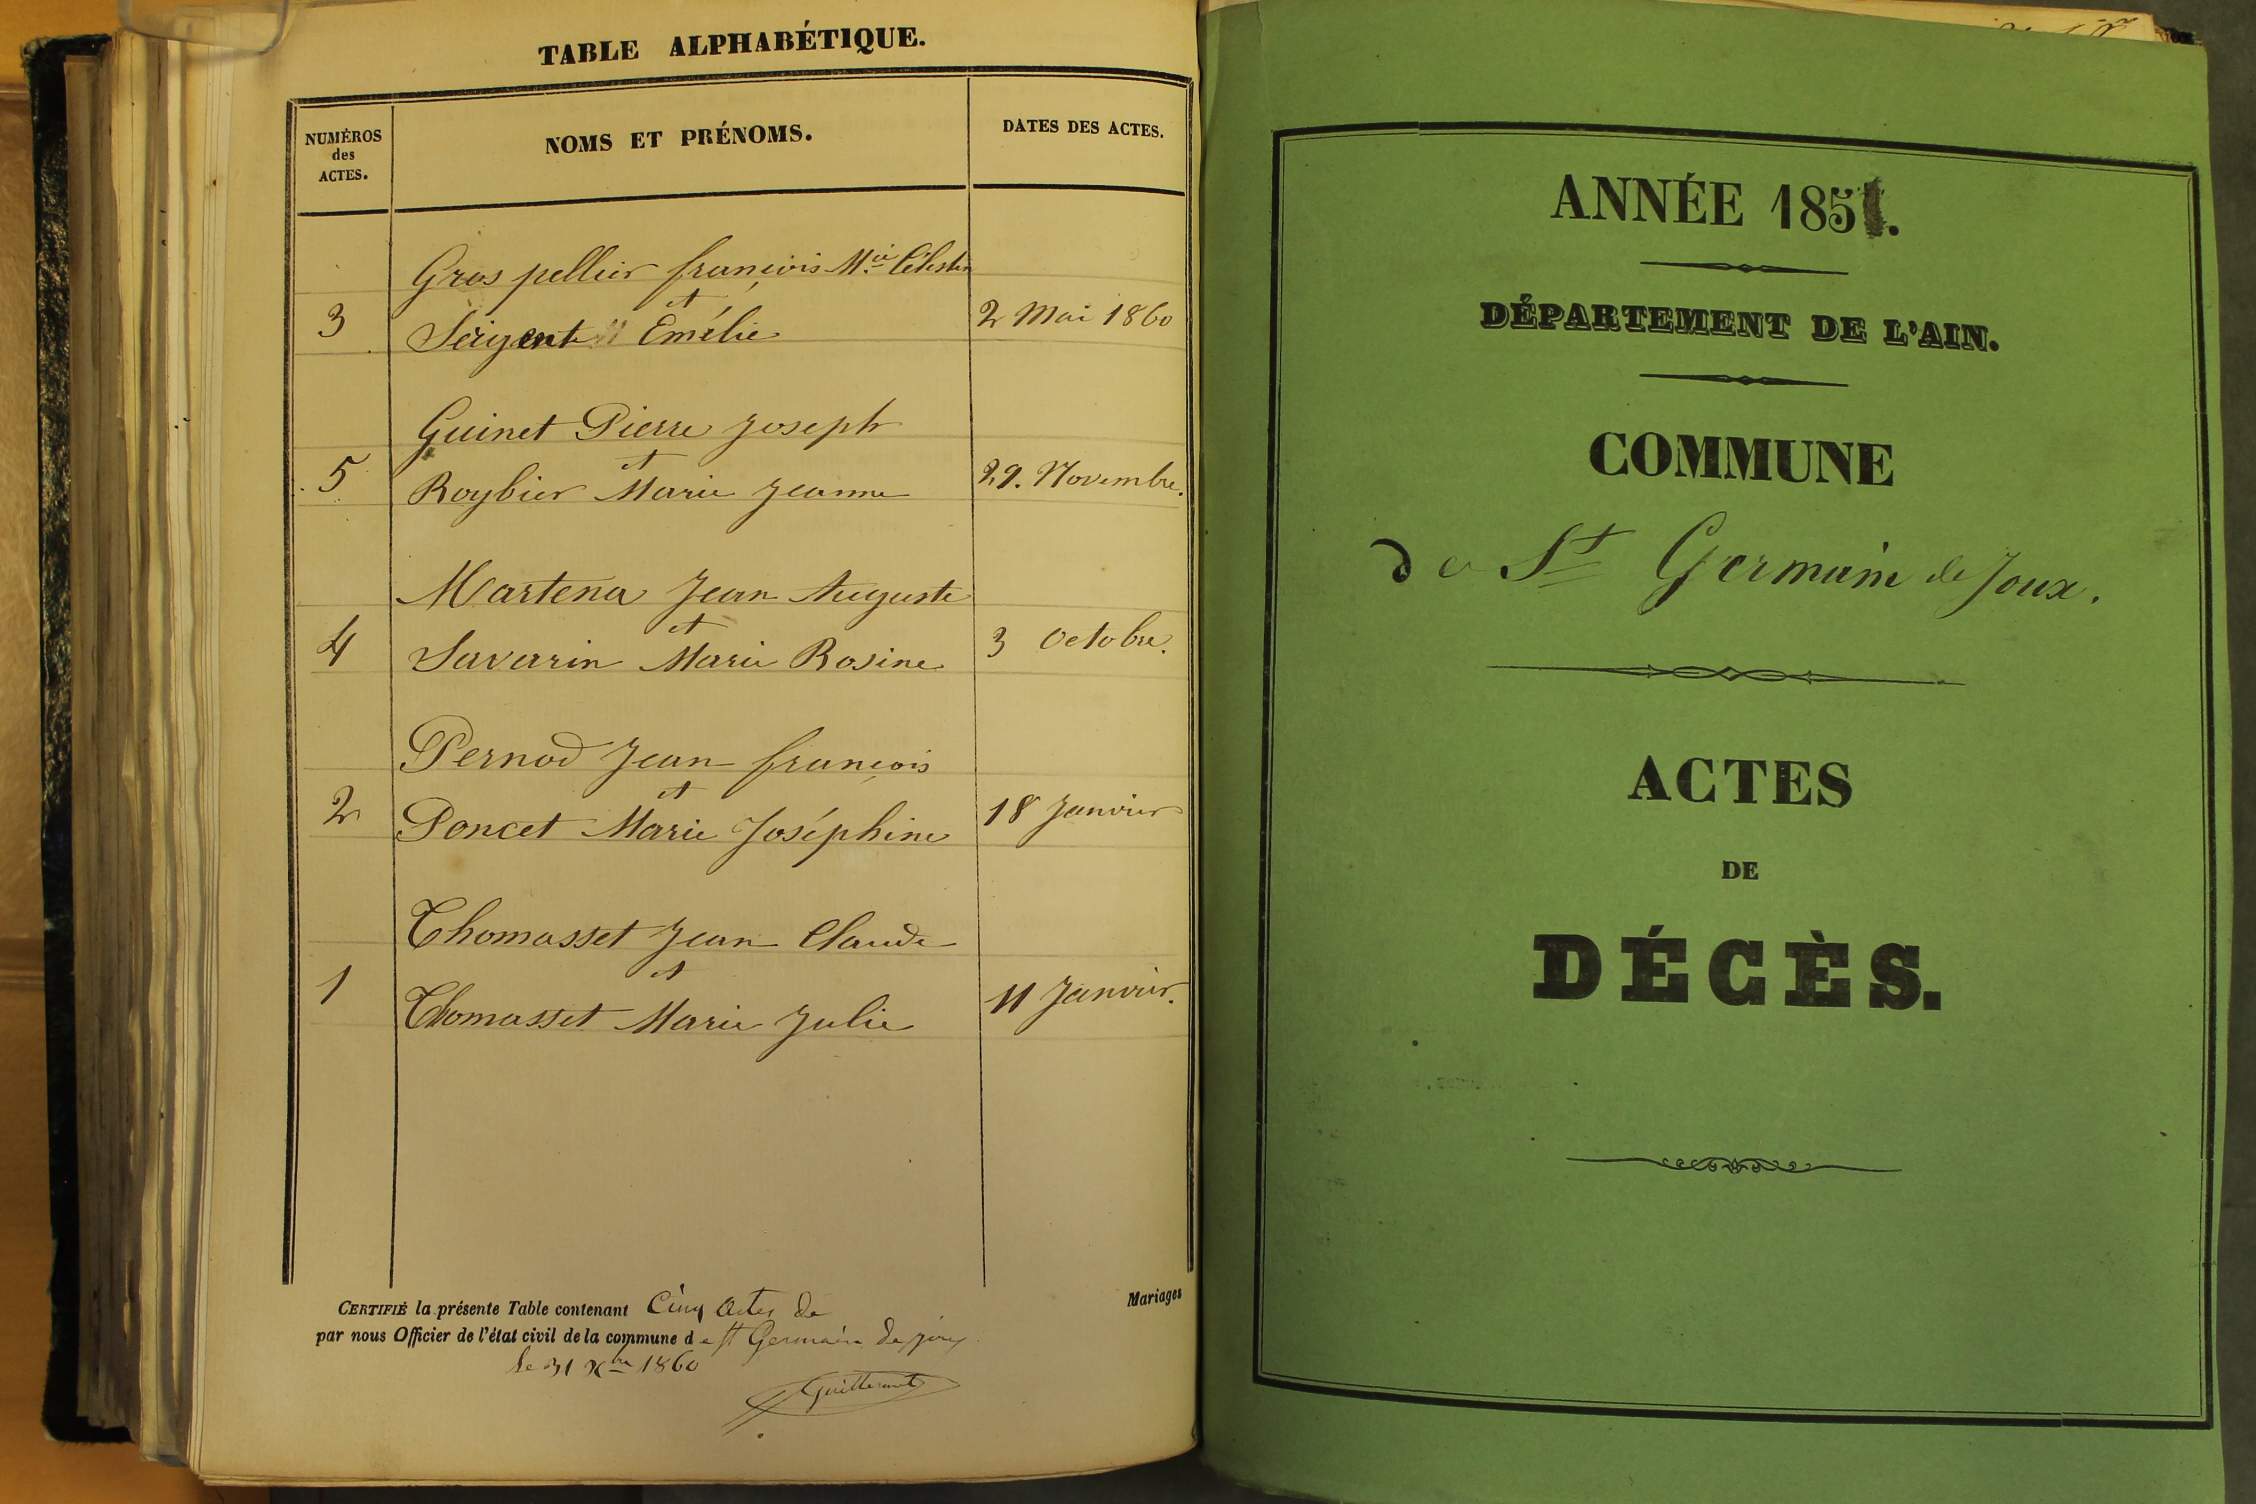 TABLE ALPHABÉTIQUE.
NUMÉROS
des
ACTES.
NOMS ET PRÉNOMS.
DATES DES ACTES.
Gros pellier françois M.ie Célestin
et
3 Sergent Emélie 2 Mai 1860
Guinet Pierre Joseph
et
5 Roybier Marie Jeanne 29. Novembre.
Martena Jean Auguste
et
4 Savarin Marie Rosine 3 Octobre.
Pernod Jean françois
et
2 Poncet Marie Joséphine 18 Janvier
Thomasset Jean Claude
et
1 Thomasset Marie Julie 11 Janvier.
CERTIFIÉ la présente Table contenant Cinq actes de Mariages
par nous Officier de l'état civil de la commune de St Germain de joux
le 31 Xbre 1860
ANNÉE 185.
DÉPARTEMENT DE L'AIN.
COMMUNE
De St Germain de Joux.
ACTES
DE
DÉCÈS.